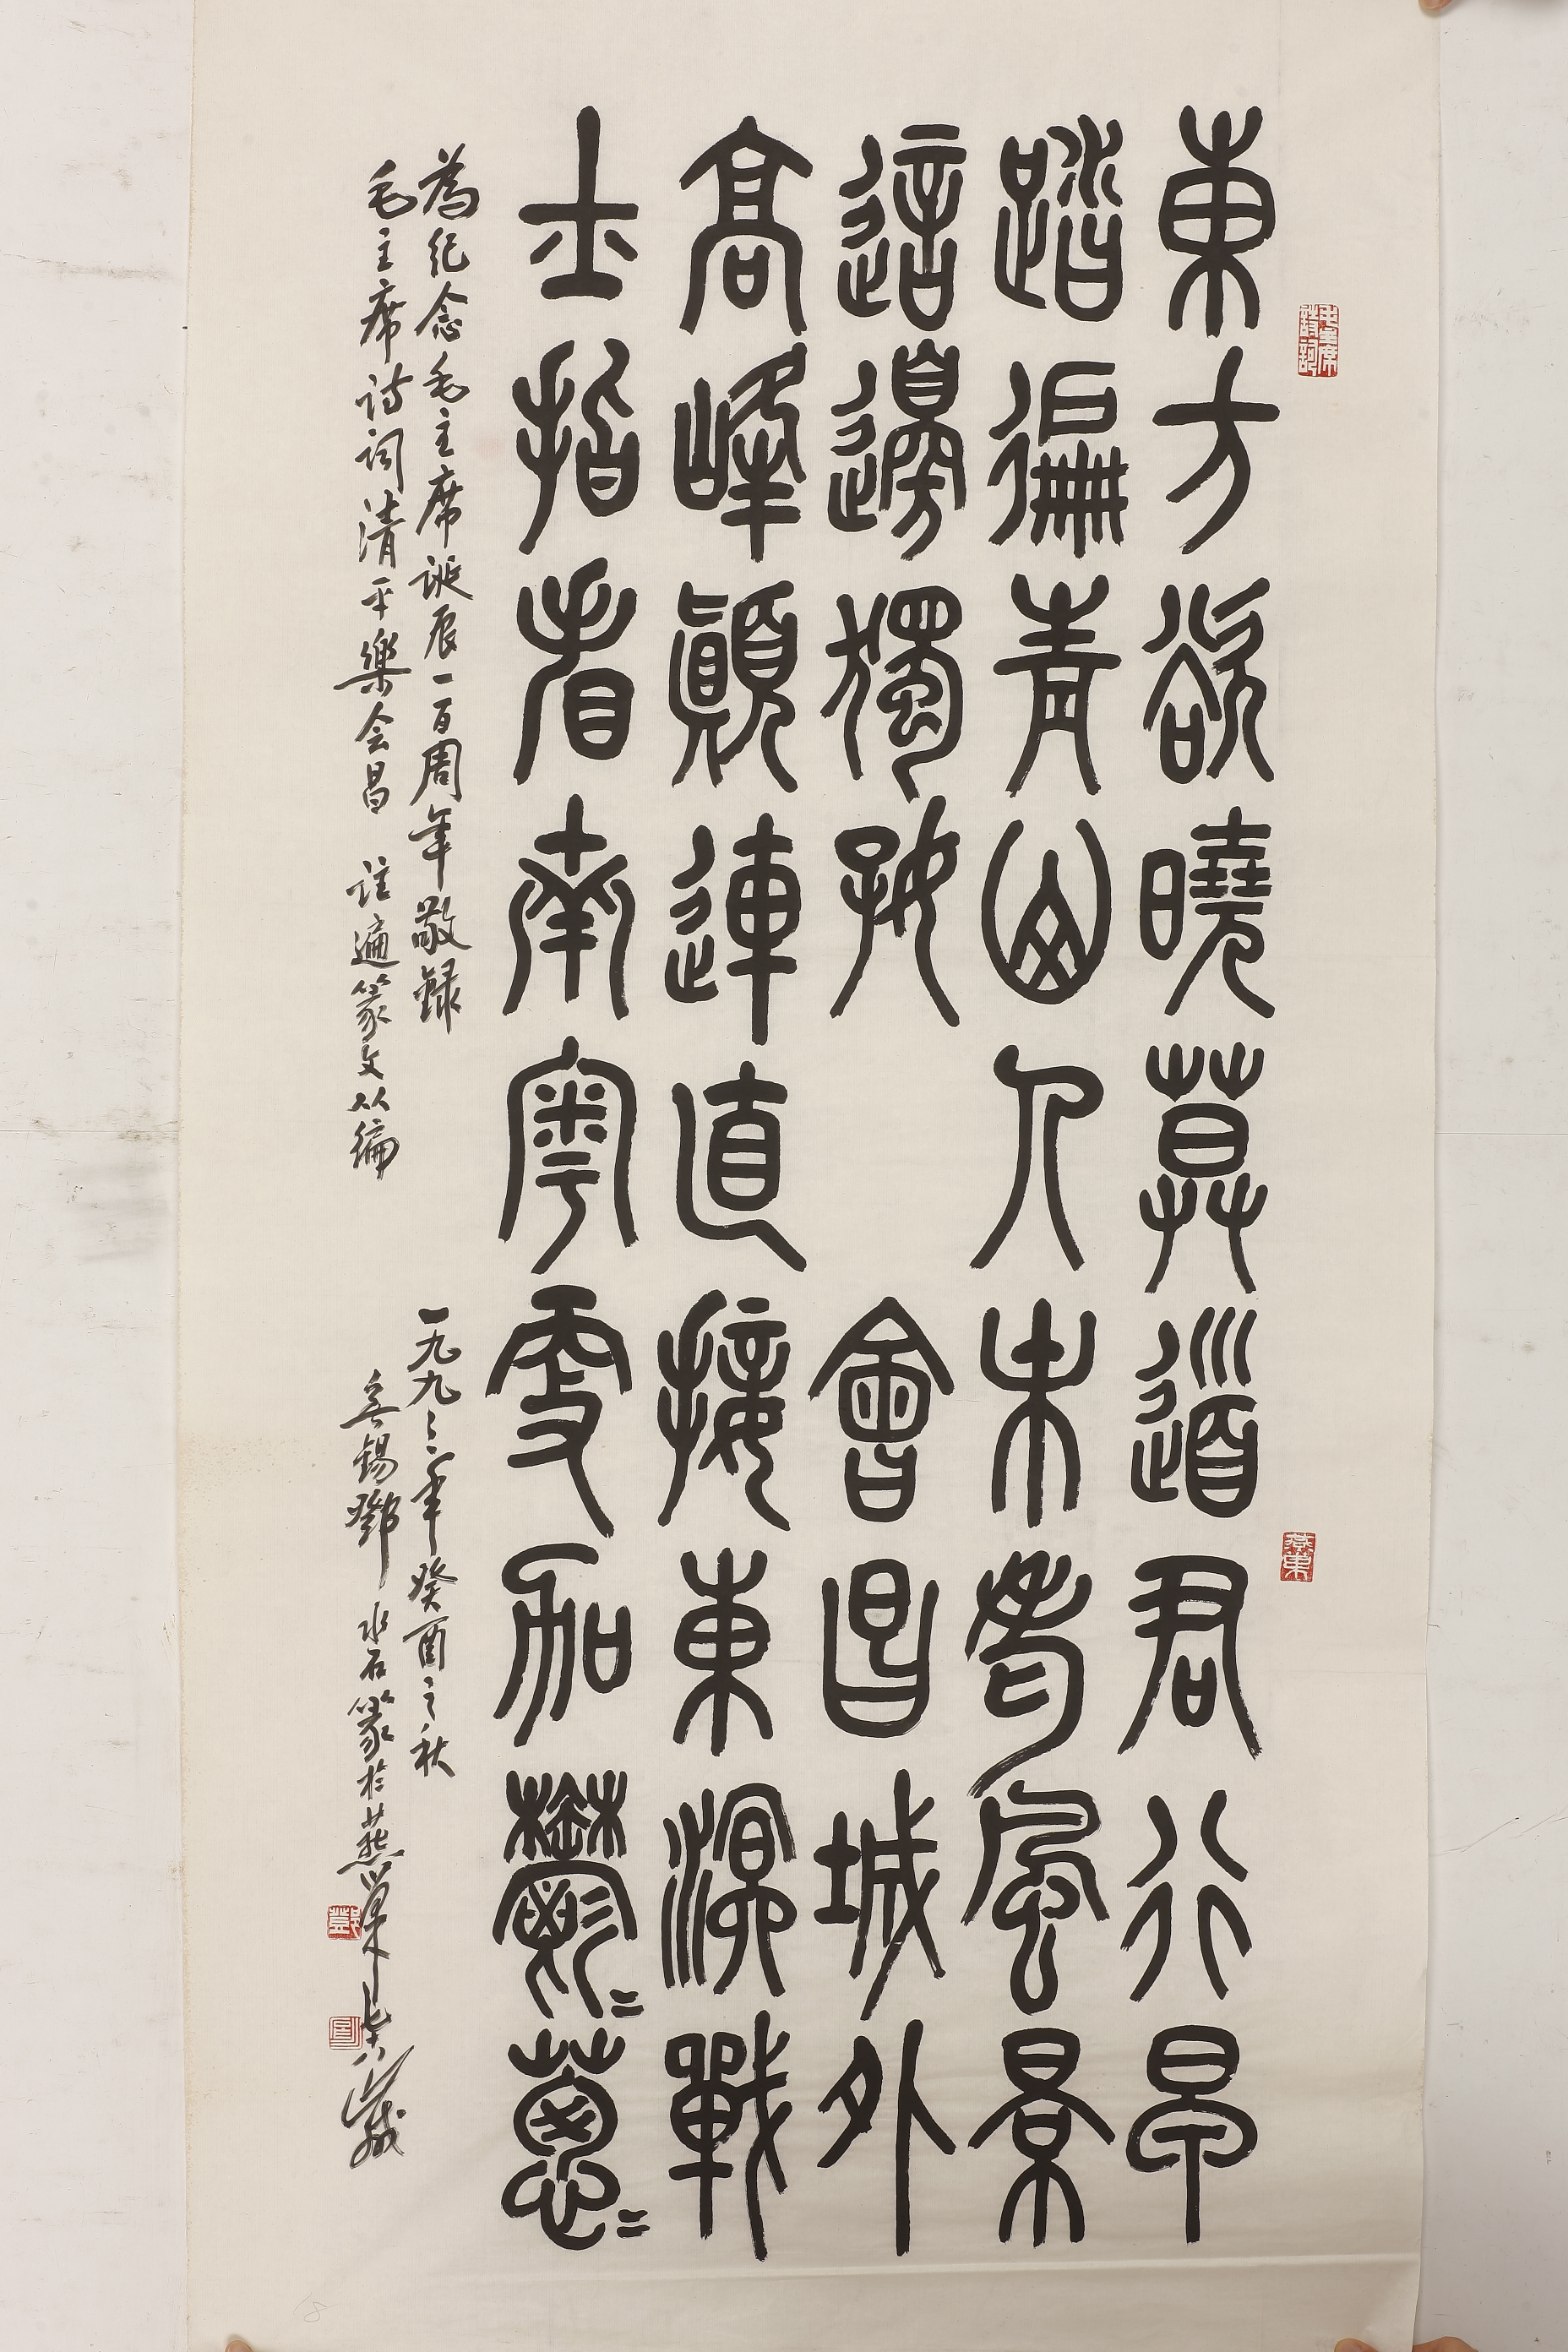 東方欲曉莫道君行早
踏徧青山人未老風景
這邊獨好 會昌城外
高峰顛連直接東溟戰
士指看南粵更加鬱〻蔥〻
為紀念毛主席诞辰一百周年敬録 一九九三年癸酉之秋
毛主席诗词清平樂会昌 註遍篆文从徧 无錫鄧 水石篆於燕
毛主席詩詞
燕東
鄧